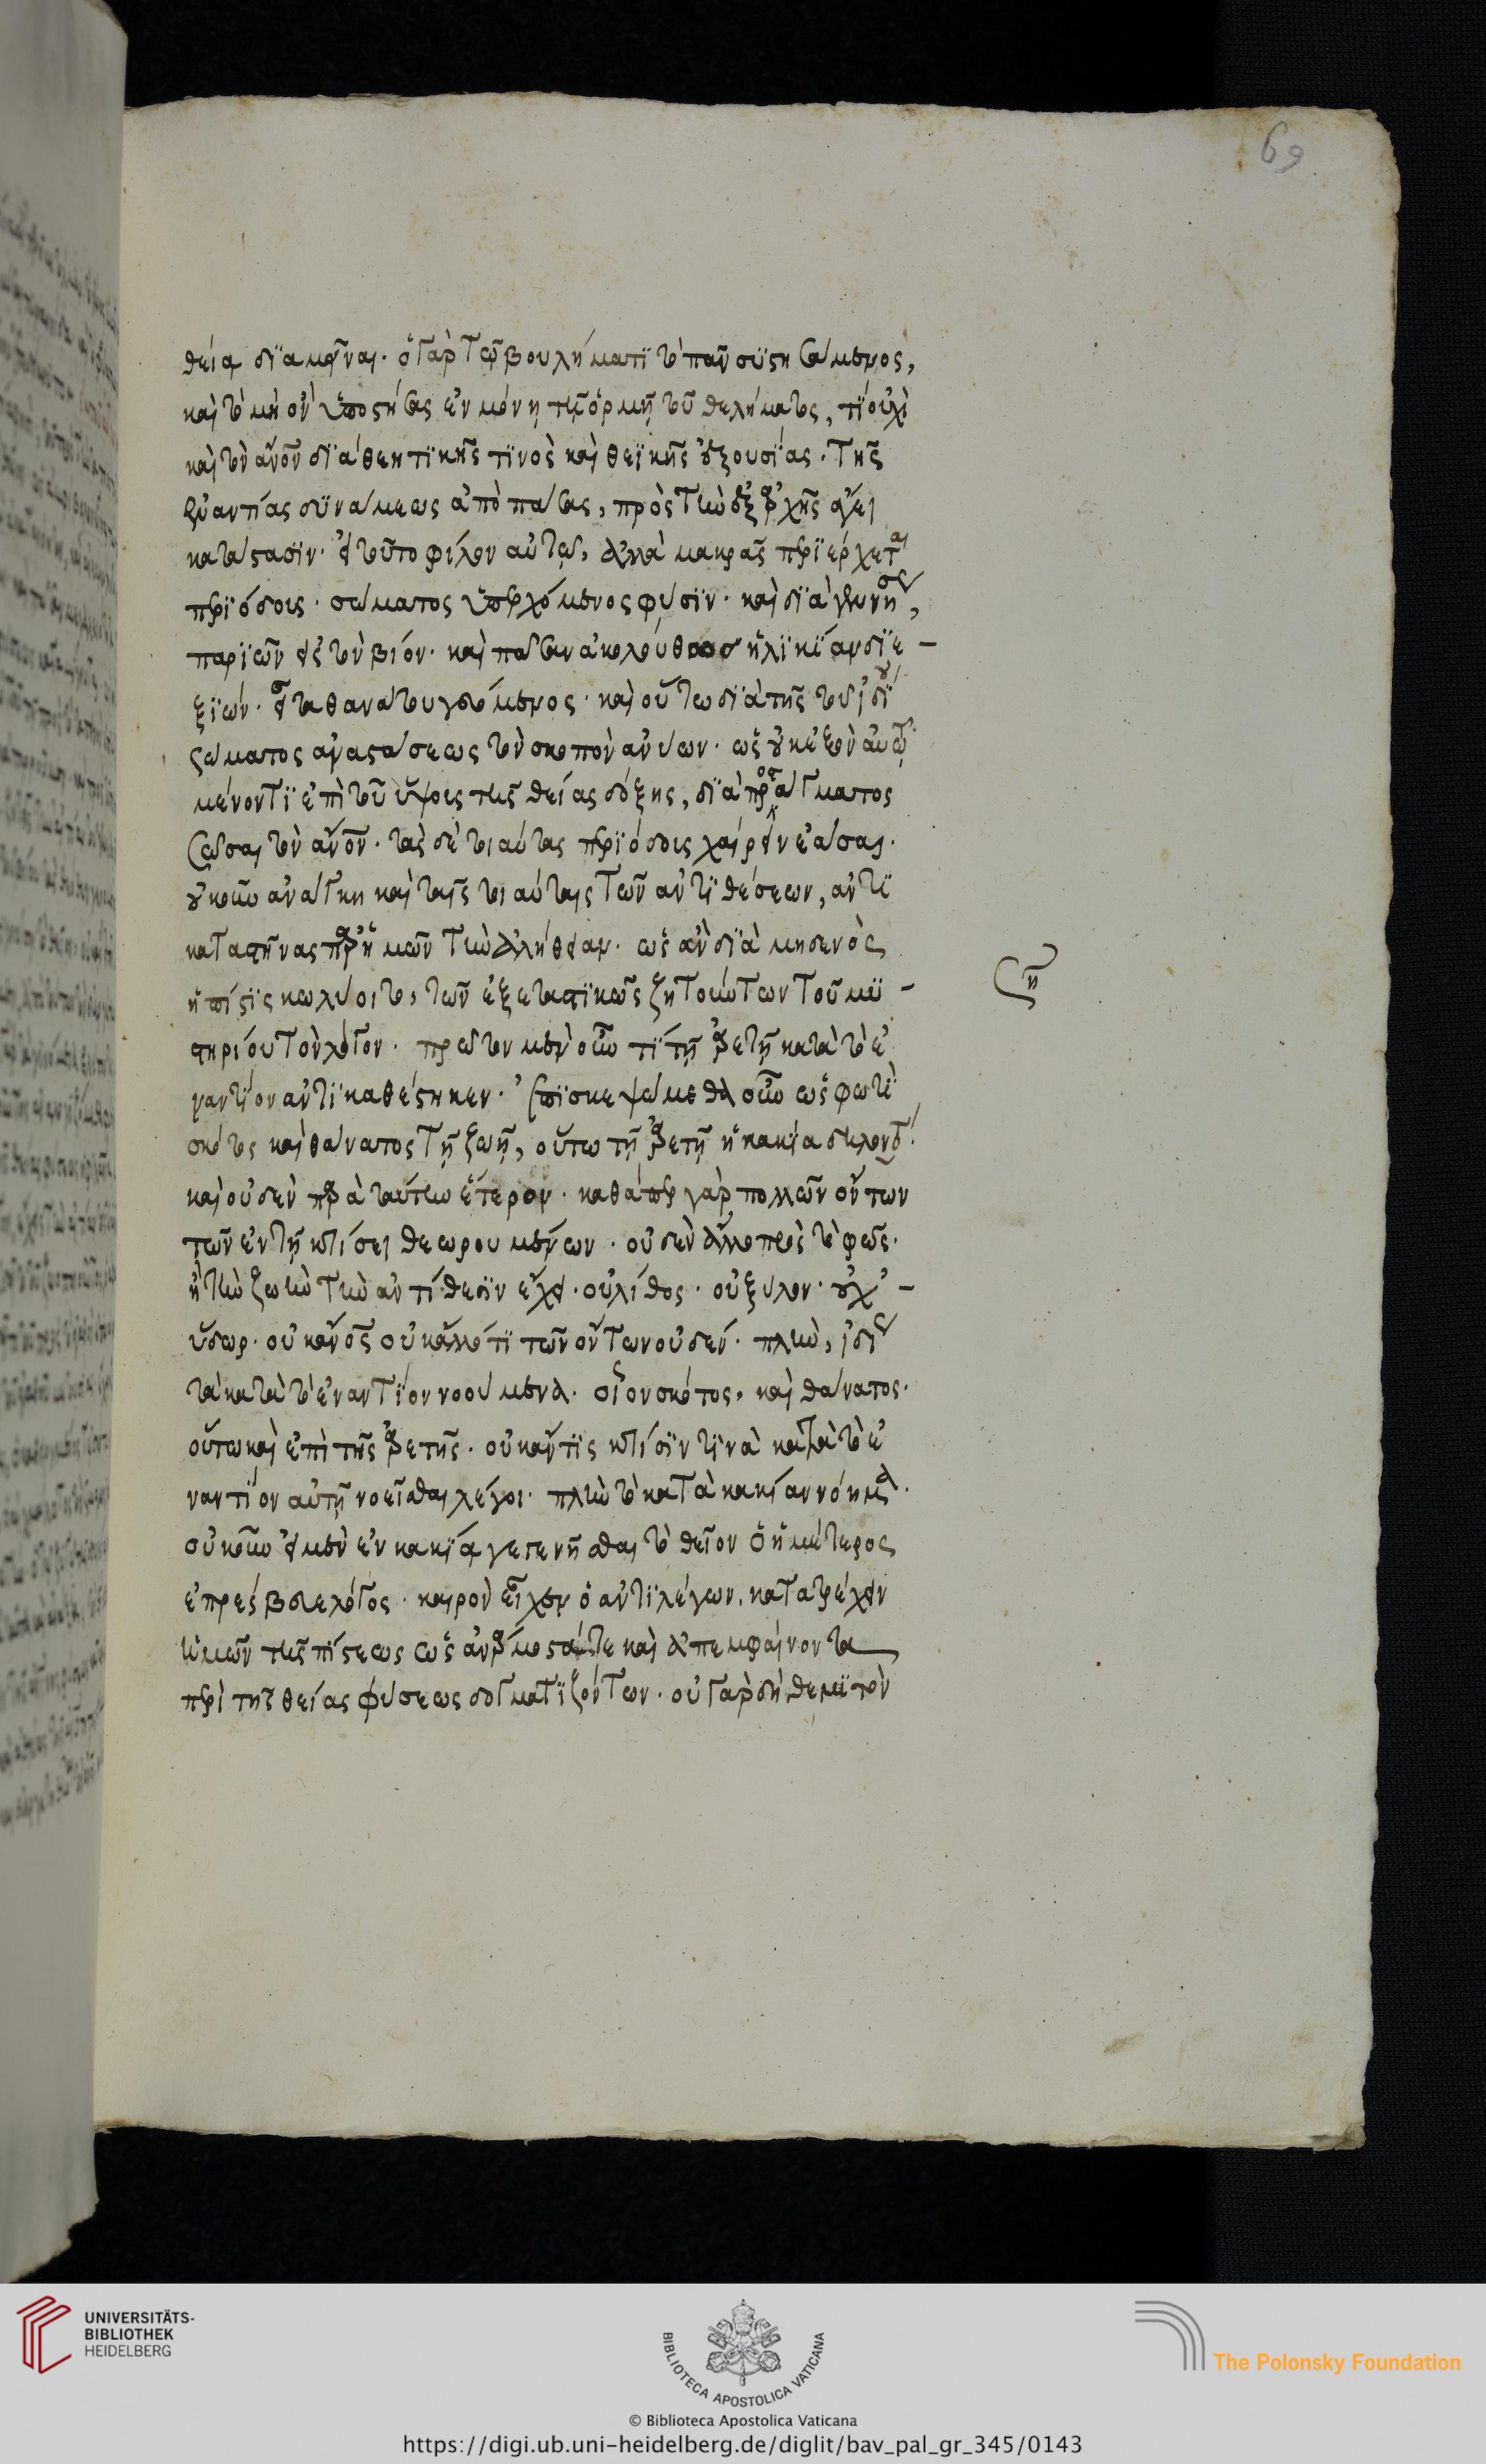 69
θεία διαμεῖναι. ὁ γὰρ τῷ βουλήματι τὸ πᾶν συστησάμενος,
καὶ τὸ μὴ ὂν ὑποστήσας ἐν μόνη τῆ ὁρμῆ τοῦ θελήματος, τί οὐχὶ
καὶ τὸν ἄνον δι αὐθεντικῆς τινὸς καὶ θεϊκῆς ἐξουσίας. τῆς
ἐναντίας δυνάμεως ἀποσπάσας, πρὸς τὴν ἐξ ἀρχῆς ἄγει
κατάστασιν. εἰ τοῦτο φίλον αὐτῶ, ἀλλὰ μακρὰς περιέρχεται
περιόδους. σώματος ὑπερχόμενος φύσιν. καὶ διὰ γεννήσεως,
παριὼν εἰς τὸν βίον. καὶ πᾶσαν ἀκολούθως ἡλικίαν διε-
ξιών. εἶτα θανάτου γευόμενος. καὶ οὕτω διὰ τῆς τοῦ ἰδίου
σώματος ἀναστάσεως τὸν σκοπὸν ἀνύων. ὡς οὐκ ἐξὸν αὐτῷ
μένοντι ἐπὶ τοῦ ὕψους τῆς θείας δόξης, διὰ προστάγματος
σῶσαι τὸν ἄνον. τὰς δὲ τοιαύτας περιόδους χαίρειν ἐάσαι.
οὐκοῦν ἀνάγκη καὶ ταῖς τοιαύταις τῶν ἀντιθέσεων, ἀντι
καταστῆναι παρ ἡμῶν τὴν ἀλήθειαν. ὡς ἂν διὰ μηδενὸς
ἡ πίστις κωλύοιτο, τῶν ἐξεταστικῶς ζητούντων τοῦ μυ-
στηρίου τὸν λόγον. πρῶτον μὲν οὖν τί τῆ ἀρετῆ κατὰ τὸ ἐ
ναντίον ἀντικαθέστηκεν. ἐπισκεψώμεθα οὖν ὡς φωτὶ
σκότος καὶ θάνατος τῆ ζωῆ, οὕτω τῆ ἀρετῆ ἡ κακία δηλονότι.
καὶ οὐδὲν παρὰ ταύτην ἕτερον. καθάπερ γὰρ πολλῶν ὄντων
τῶν ἐν τῆ κτίσει θεωρουμένων. οὐδὲν ἄλλο πρὸς τὸ φῶς.
ἢ τὴν ζωὴν τὴν ἀντίθεσιν ἔχει. οὐ λίθος. οὐ ξύλον. οὐχ-
ὕδωρ. οὐκ ἄνος οὐκ ἄλλό τι τῶν ὄντων οὐδέν. πλὴν, ἰδίως
τὰ κατὰ τὸ ἐναντίον νοούμενα. οἷον σκότος, καὶ θάνατος.
οὕτω καὶ ἐπὶ τῆς ἀρετῆς. οὐκ ἄν τις κτίσιν τινὰ κατὰ τὸ ἐ
ναντίον αὐτῆ νοεῖσθαι λέγοι. πλὴν τὸ κατὰ κακίαν νόημα.
οὐκοῦν εἰ μὲν ἐν κακία γεγενῆσθαι τὸ θεῖον ὁ ἡμέτερος
ἐπρέσβευε λόγος. καιρὸν εἶχεν ὁ ἀντιλέγων, κατατρέχειν
ἡμῶν τῆς πίστεως ὡς ἀνάρμοστά τε καὶ ἀπεμφαίνοντα
περὶ τῆς θείας φύσεως δογματιζόντων. οὐ γὰρ δὴ θεμιτὸν
UNIVERSITÄTS-
BIBLIOTHEK
HEIDELBERG
BIBLIOTECA APOSTOLICA VATICANA
The Polonsky Foundation
© Biblioteca Apostolica Vaticana
https://digi.ub.uni-heidelberg.de/diglit/bav_pal_gr_345/0143